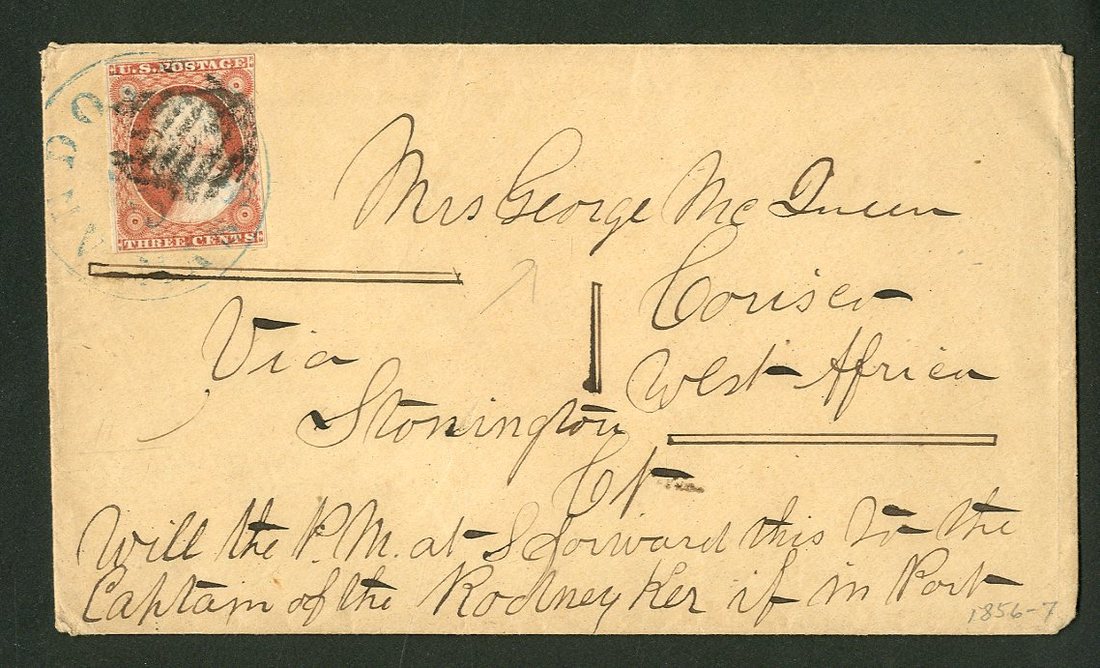 U.S. POSTAGE
THREE CENTS
Mrs George McQueen
Corisco
West Africa
Via
Stonington
Ct
Will the P.M. at S forward this to the
Captain of the Rodney Ker if in Port
1856-7